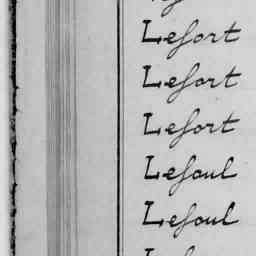 Lefort
Lefort
Lefort
Lefoul
Lefoul